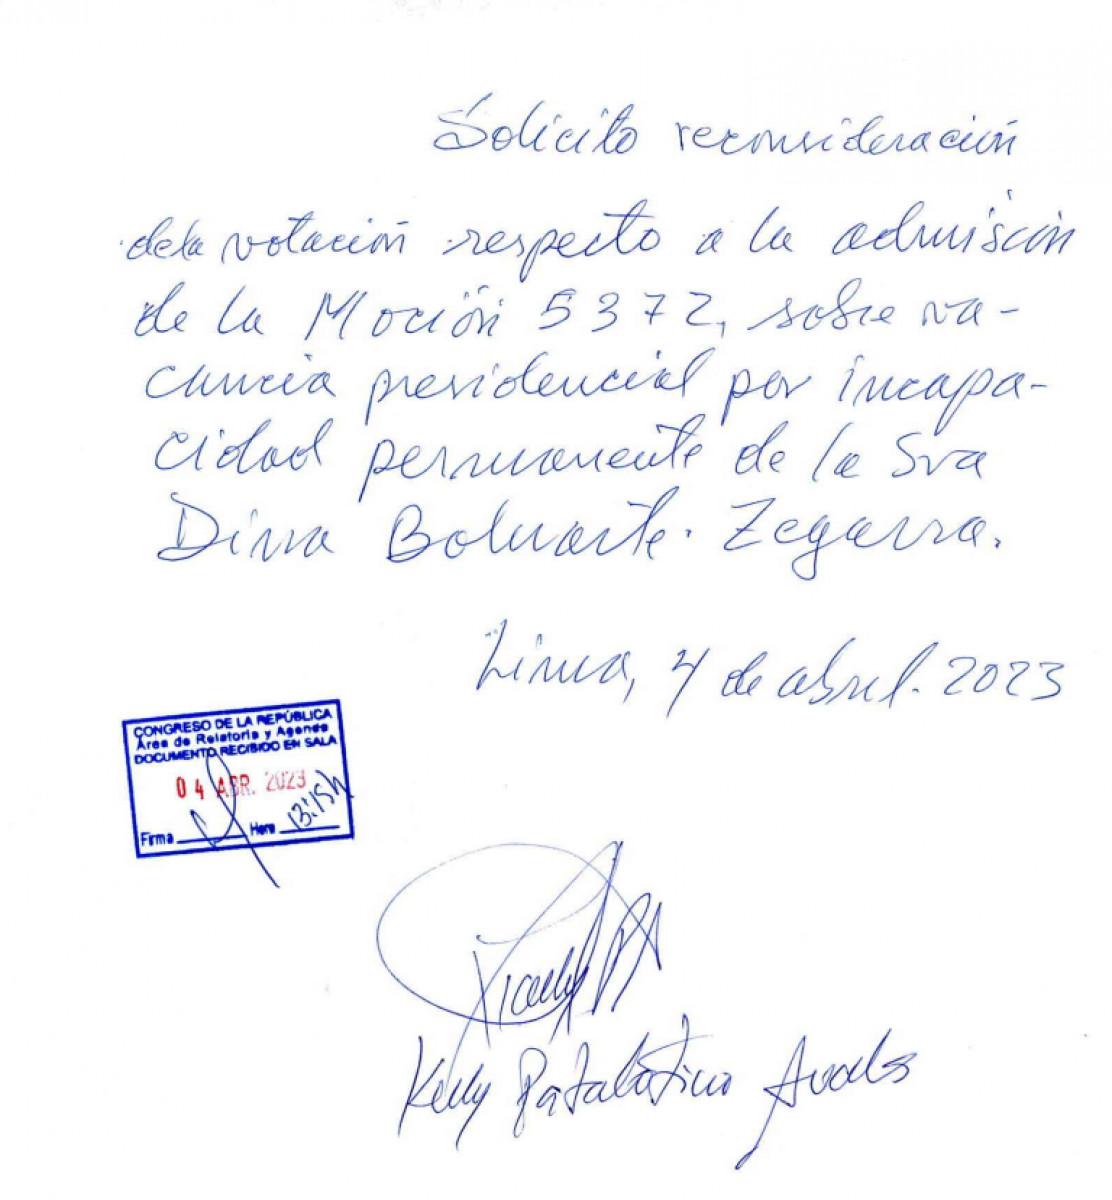 Solicito reconsideración
de la votación respecto a la admisión
de la Moción 5372, sobre va-
cancia presidencial por incapa-
cidad permanente de la Sra
Dina Boluarte Zegarra.
Lima, 4 de abril. 2023
CONGRESO DE LA REPÚBLICA
Área de Relatoría y Agenda
DOCUMENTO RECIBIDO EN SALA
04 ABR. 2023
Firma Hora 13:15h
Kelly Portalatino Avalos